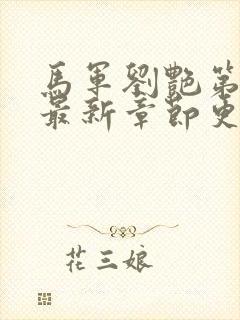 馬軍劉艷第
最新章節更
花三娘